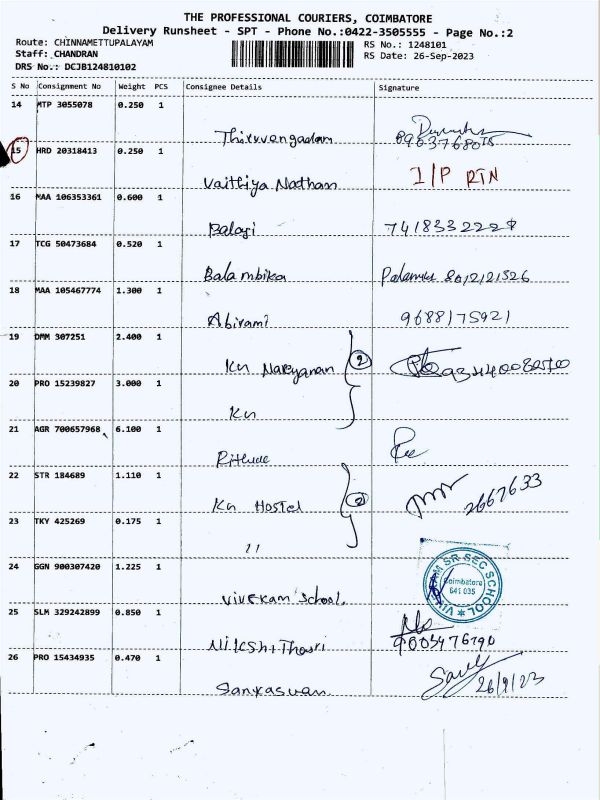 THE PROFESSIONAL COURIERS, COIMBATORE
Delivery Runsheet - SPT - Phone No.:0422-3505555 - Page No.:2
Route: CHINNAMETTUPALAYAM RS No.: 1248101
Staff: CHANDRAN RS Date: 26-Sep-2023
DRS No.: DCJB124810102
S No Consignment No Weight PCS Consignee Details Signature
14 MTP 3055078 0.250 1
Thiruvengadam
15 HRD 20318413 0.250 1
Vaithiya Natham I/P RTN
16 MAA 106353361 0.600 1
Balagi
17 TCG 50473684 0.520 1
Balambika
18 MAA 105467774 1.300 1
Abirami 9688175921
19 DMM 307251 2.400 1
Kn Narayanan 2
20 PRO 15239827 3.000 1
Kn
21 AGR 700657968 6.100 1
22 STR 184689 1.110 1
Kn Hostel 2 2667633
23 TKY 425269 0.175 1
11
24 GGN 900307420 1.225 1
Vivekam School. VIVEKAM SR SEC SCHOOL Coimbatore 641 035
25 SLM 329242899 0.850 1
26 PRO 15434935 0.470 1
26/9/23